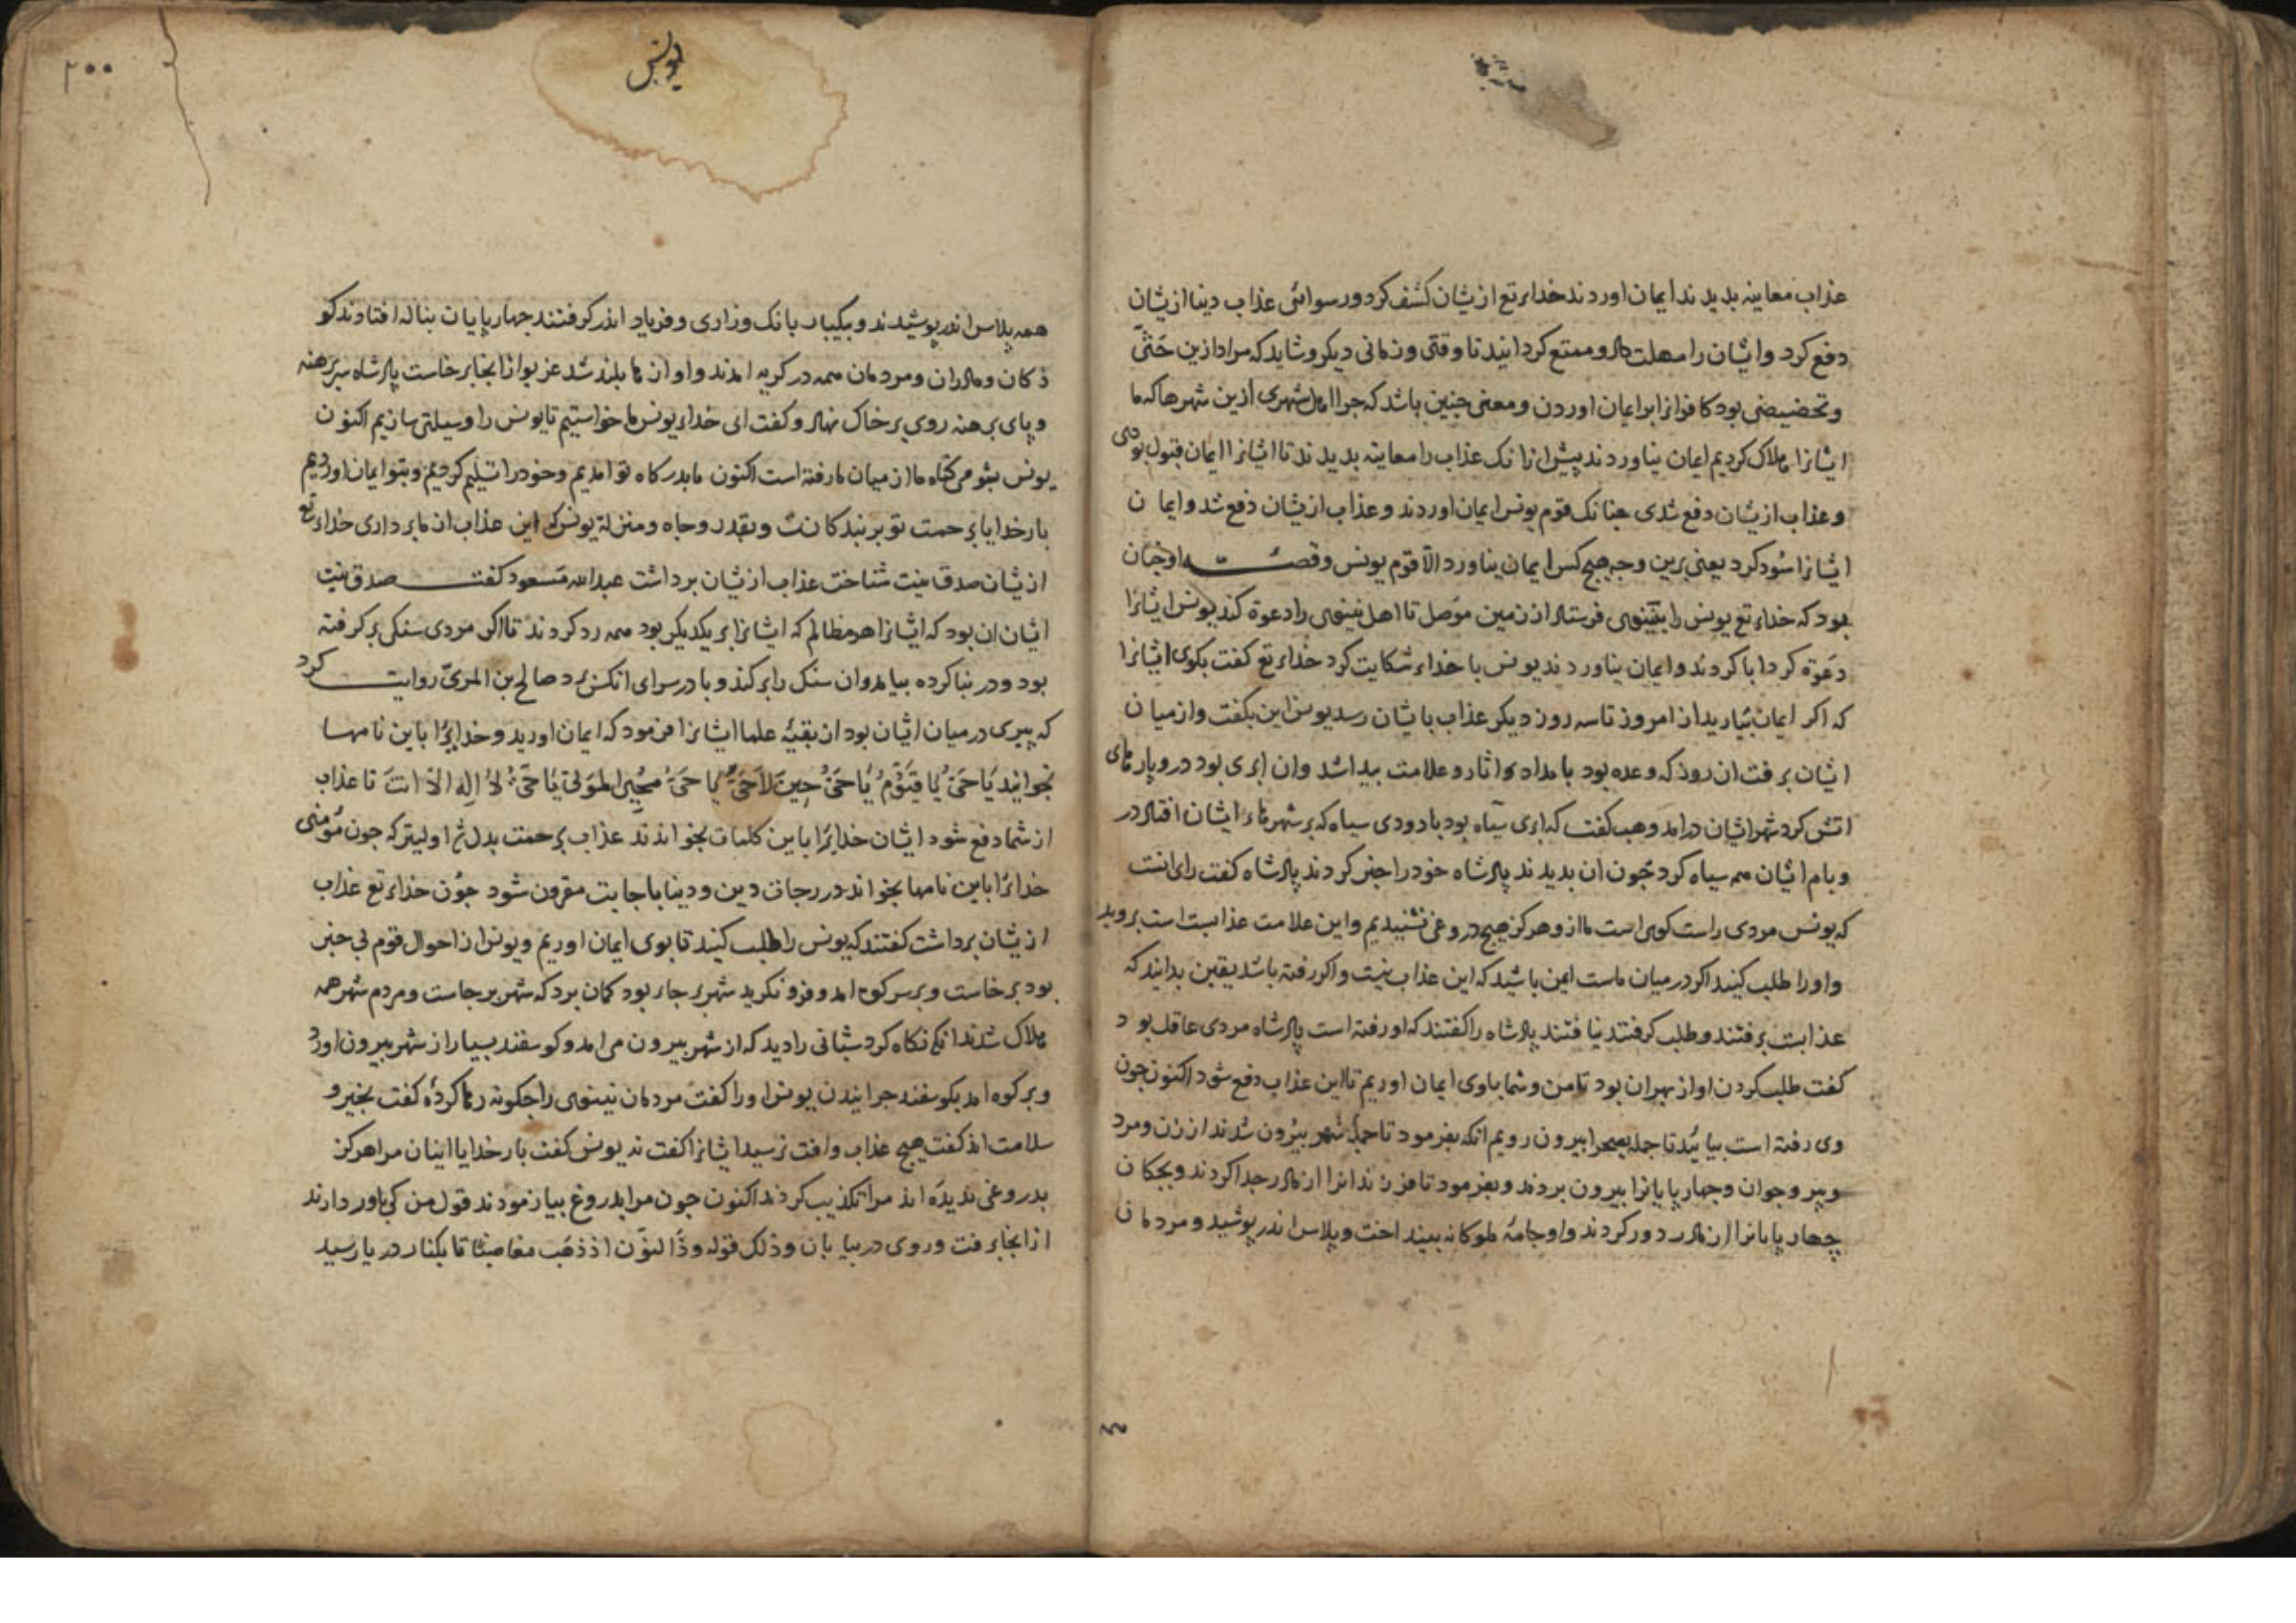 عذاب معاینه بدیدند ایمان اوردند خدای تع ازیشان کشف کرد ورسوائی عذاب دنیا ازیشان
دفع کرد وایشان را مهلت داد وممتع کردانید تا وقتی وزمانی دیکر وشاید که مراد ازین حثّی
وتحضیضی بود کافرانرا بر ایمان اوردن ومعنی چنین باشد که جرا اهل شهری ازین شهرها که ما
ایشانرا هلاک کردیم ایمان نیاوردند پیش ازانک عذاب را معاینه بدیدند تا ایشانرا ایمان قبول بودی
وعذاب ازیشان دفع شدی جنانک قوم یونس ایمان اوردند وعذاب ازیشان دفع شد وایمان
ایشانرا سود کرد یعنی برین وجه هیچ کس ایمان نیاورد الّا قوم یونس وقصّه او جنان
بود که خدای تع یونس را بنینوی فرستاد از زمین موصل تا اهل نینوی را دعوة کند یونس ایشانرا
دعوة کرد ابا کردند وایمان نیاوردند یونس با خدای شکایت کرد خدای تع کفت بکوی ایشانرا
که اکر ایمان نیارید از امروز تا سه روز دیکر عذاب بایشان رسد یونس این بکفت واز میان
ایشان برفت ان روز که وعده بود بامداد اثار وعلامت پیدا شد وان ابری بود درو پارهای
اتش کرد شهر ایشان درامد وهب کفت که ابری سیاه بود با دودی سیاه که بر شهرهای ایشان افتاد در
وبام ایشان همه سیاه کرد چون ان بدیدند پادشاه خود را خبر کردند پادشاه کفت رای انست
که یونس مردی راست کوی است ما ازو هرکز هیچ دروغی نشنیدیم واین علامت عذابست بروید
واورا طلب کنید اکر در میان ماست ایمن باشید که این عذاب نیست واکر رفته باشد یقین بدانید که
عذابست برفتند وطلب کرفتند نیافتند پادشاه را کفتند که او رفته است پادشاه مردی عاقل بود
کفت طلب کردن او از بهر ان بود تا من وشما باوی ایمان اوریم تا این عذاب دفع شود اکنون چون
وی رفته است بیائید تا جمله بصحرا بیرون رویم انکه بفرمود تا جمله شهر بیرون شدند از زن ومرد
وپیر وجوان وچهارپایانرا بیرون بردند وبفرمود تا فرزندانرا از مادر جدا کردند وبچکان
چهارپایانرا از مادر دور کردند واو جامهٔ ملوکانه بینداخت وپلاس اندر پوشید ومردمان
یونس
۲۰۰
همه پلاس اندر پوشیدند وبیکبار بانک وزاری وفریاد اندر کرفتند چهارپایان بناله افتادند کو
ذکان ومادران ومردمان همه در کریه امدند واوازها بلند شد عزیو ازانجا برخاست پادشاه سربرهنه
وپای برهنه روی بر خاک نهاد وکفت ای خدای یونس ما خواستیم تا یونس را وسیلتی سازیم اکنون
یونس بشومی کناه ما از میان ما رفته است اکنون ما بدرکاه تو امدیم وخود را تسلیم کردیم وبتو ایمان اوردیم
بار خدایا برحمت تو بر بندکانت وبقدر وجاه ومنزلة یونس که این عذاب از ما برداری خدای تع
ازیشان صدق نیت شناخت عذاب ازیشان برداشت عبدالله مسعود کفت صدق نیت
ایشان ان بود که ایشانرا هر مظالم که ایشانرا بر یکدیکر بود همه رد کردند تا اکر مردی سنکی برکرفته
بود ودر بنا کرده بیامد وان سنک را برکند وبا در سرای انکس برد صالح بن المریّ روایت کرد
که پیری در میان ایشان بود از بقیّهٔ علما ایشانرا فرمود که ایمان اورید وخدایرا باین نامها
بخوانید یَا حَیُّ یَا قَیُّوْمُ یَا حَیُّ حِینَ لَا حَیَّ یَا حَیُّ مُحْیِی الْمَوْتَی یَا حَیُّ لَا اِلهَ اِلّا انتَ تا عذاب
از شما دفع شود ایشان خدایرا باین کلمات بخواندند عذاب برحمت بدل شد اولیتر که چون مؤمنی
خدایرا باین نامها بخواند در رجات دین ودنیا باجابت مقرون شود چون خدای تع عذاب
ازیشان برداشت کفتند که یونس را طلب کنید تا بوی ایمان اوریم ویونس از احوال قوم بی خبر
بود برخاست وبر سر کوه امد وفرو نکرید شهر بر جای بود کمان برد که شهر برجاست ومردم شهر همه
هلاک شدند انکه نکاه کرد شبانی را دید که از شهر بیرون می امد وکوسفند بسیار از شهر بیرون اورد
وبر کوه امد بکوسفند چرانیدن یونس اورا کفت مردمان نینوی را چکونه رها کردهٔ کفت بخیر و
سلامت اند کفت هیچ عذاب وافت نرسید ایشانرا کفت نه یونس کفت بار خدایا اینان مرا هرکز
بدروغی ندیده اند مرا تکذیب کردند اکنون چون مرا بدروغ بیازمودند قول من کی باور دارند
ازانجا برفت وروی در بیابان وذلک قوله وذا النّون اذ ذهب مغاضبًا تا بکنار دریا رسید